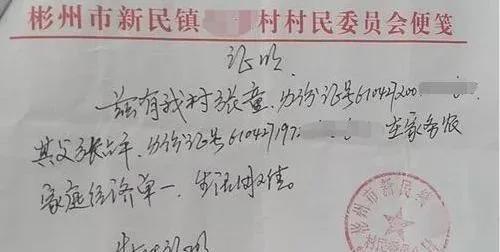 彬州市新民镇 村村民委员会便笺
证明
兹有我村张童，身份证号610427200
其父张占平，身份证号61042719７ 在家务农
家庭经济单一，生活困难。
特此证明
彬州市新民镇
村民委员会